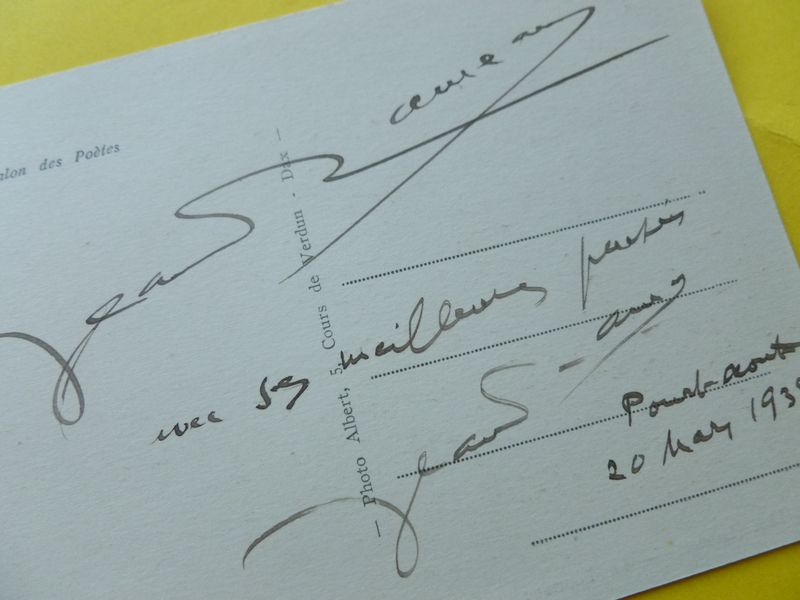 alon des Poètes
Jean Rameau
— Photo Albert, 5, Cours de Verdun - Dax —
avec ses meilleures
Jean Rameau
Pourtaout
20 Mars 193